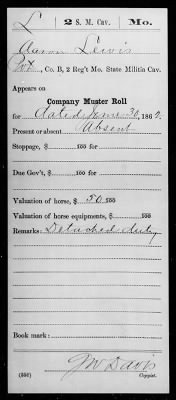 L | 2 S. M. Cav. | Mo.
Aaron Lewis
Pvt., Co. B, 2 Reg't Mo. State Militia Cav.
Appears on
Company Muster Roll
for dated June 30, 1862.
Present or absent Absent
Stoppage, $ 100 for
Due Gov't, $ 100 for
Valuation of horse, $ 50 100
Valuation of horse equipments, $ 100
Remarks: Detached duty
Book mark:
J W Davis
(356) Copyist.